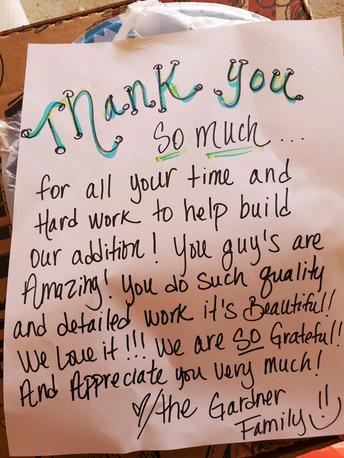 Thank you
so much...
for all your time and
Hard work to help build
our addition! You guy's are
Amazing! You do such quality
and detailed work it's Beautiful!!
We Love it!!! We are SO Grateful!
And Appreciate you very much!
♡/the Gardner
Family!!